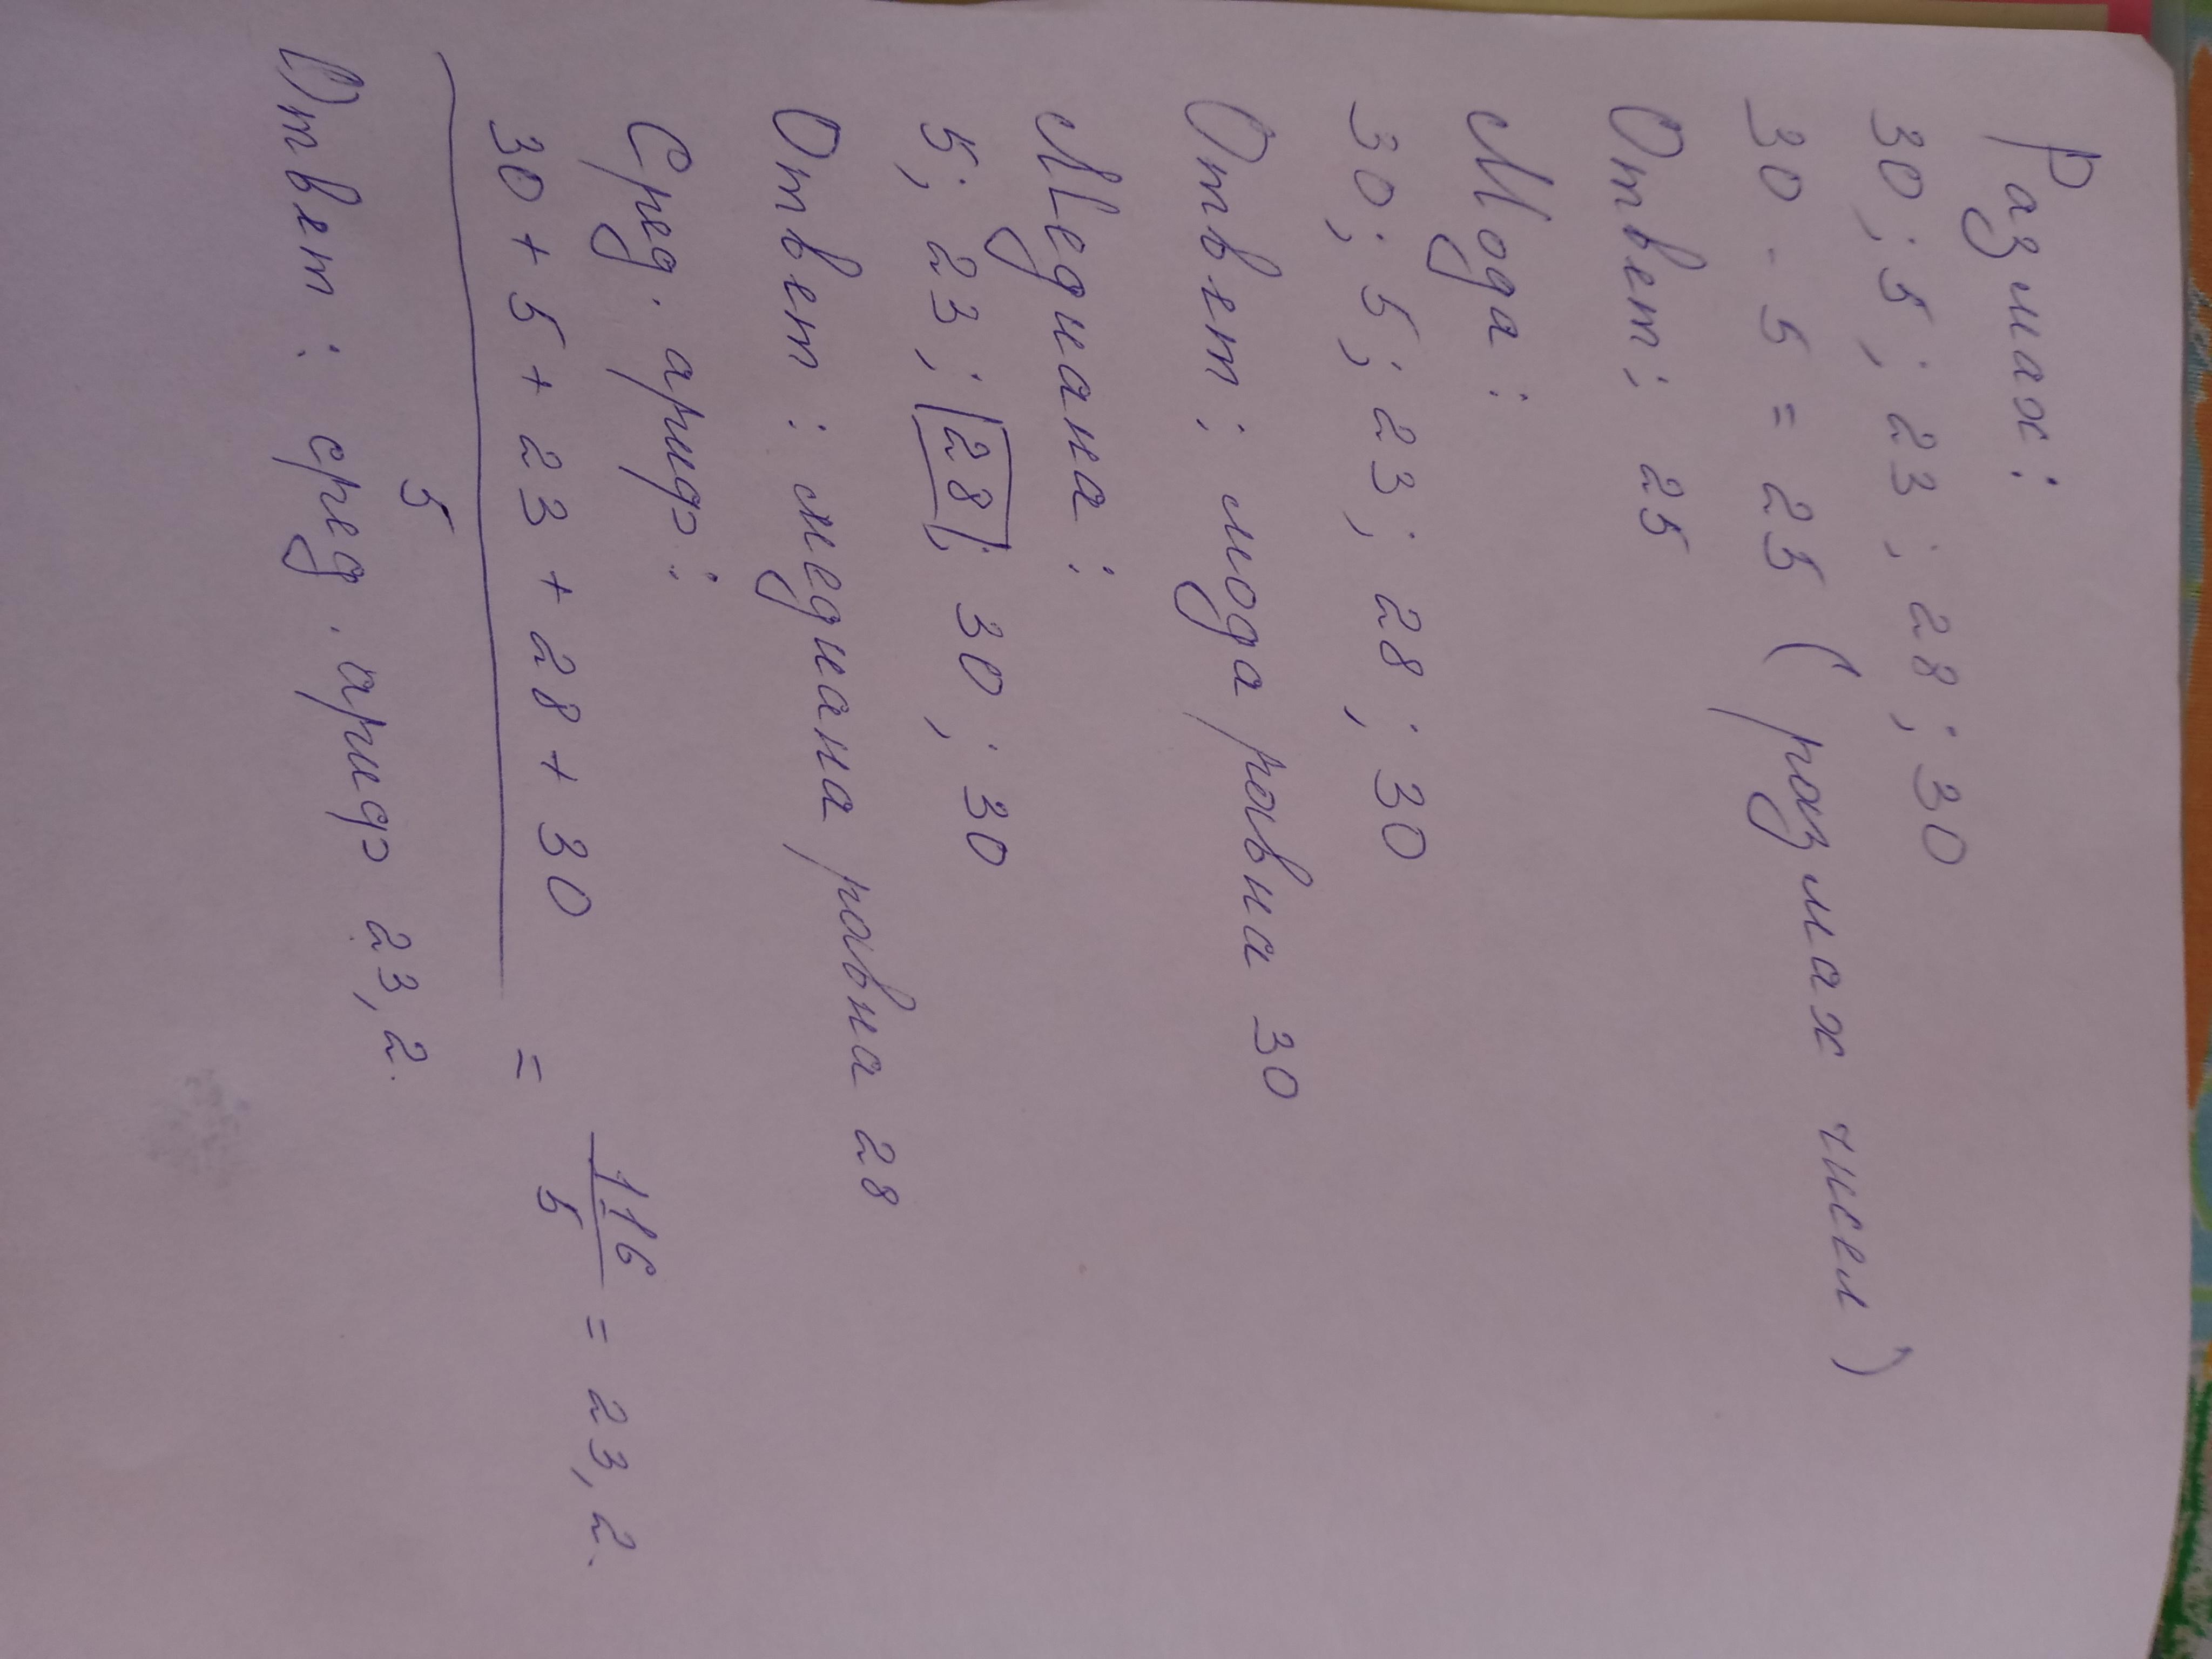 Размах:
30; 5; 23; 28; 30
30 - 5 = 25 (размах чисел)
Ответ: 25
Мода:
30; 5; 23; 28; 30
Ответ: мода равна 30
Медиана:
5; 23; 28; 30; 30
Ответ: медиана равна 28
Сред. ариф:
30 + 5 + 23 + 28 + 30 / 5 = 116 / 5 = 23,2.
Ответ: сред. ариф 23,2.